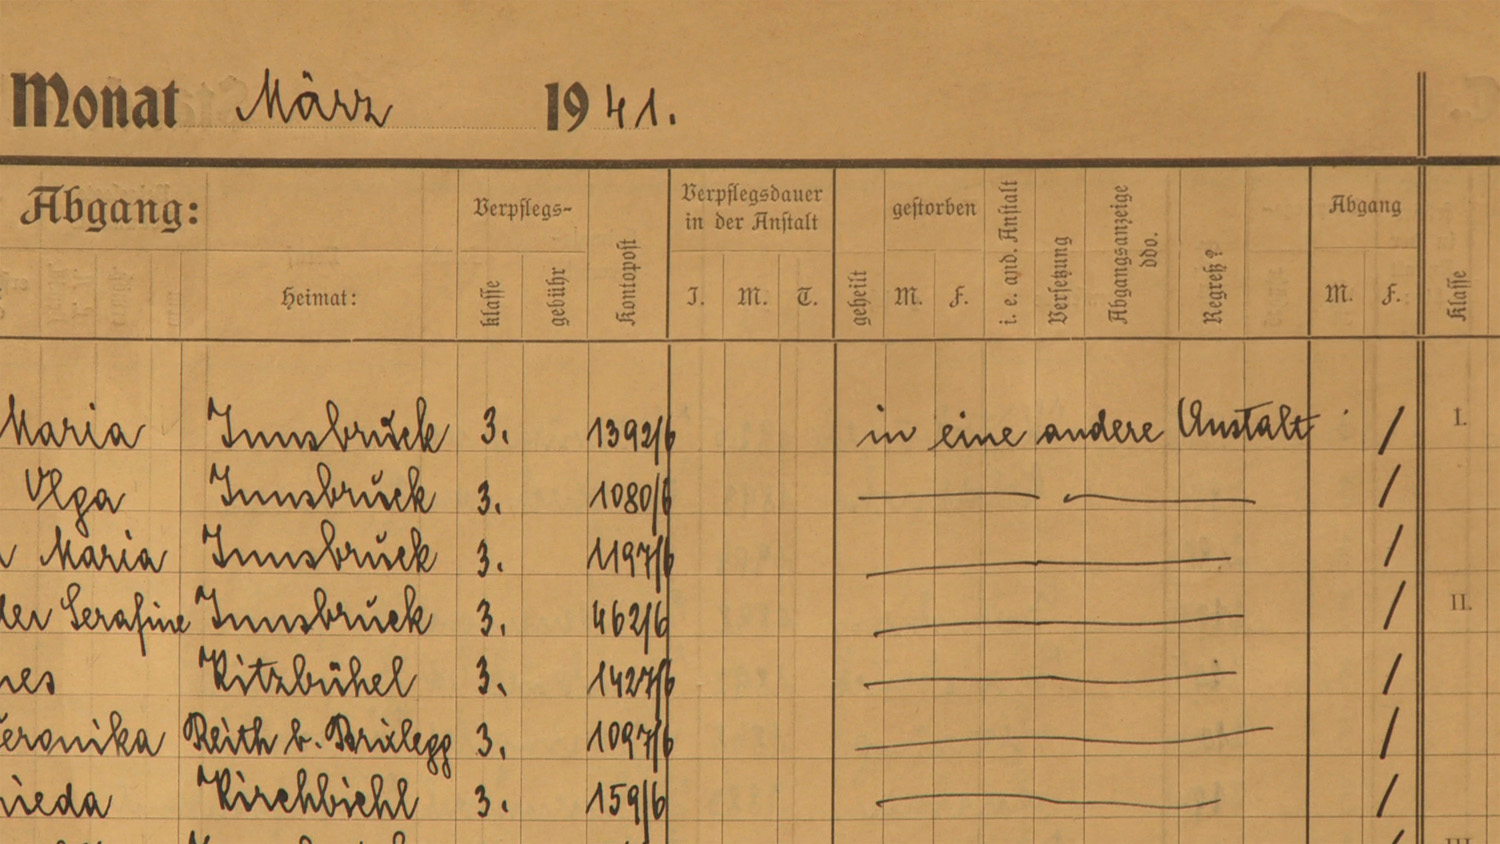 Monat März 1941.
Abgang: Verpflegs- Verpflegsdauer in der Anstalt gestorben Abgang
Heimat: klasse gebühr Kontopost J. M. T. geheilt M. F. i. e. and. Anstalt Versetzung Abgangsanzeige ddo. Regreß? M. F. Klasse
Maria Innsbruck 3. 1392/6 in eine andere Anstalt / I.
Olga Innsbruck 3. 1080/6 — — /
Maria Innsbruck 3. 1197/6 — /
der Serafine Innsbruck 3. 462/6 — / II.
nes Kitzbühel 3. 1427/6 — /
eronika Reith b. Brixlegg 3. 1097/6 — /
ieda Kirchbichl 3. 159/6 — /